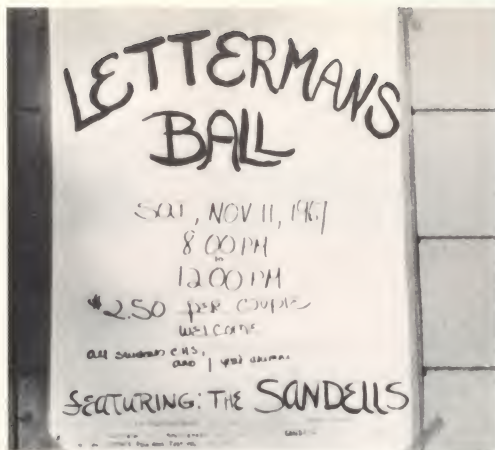 LETTERMANS
BALL
SAT, NOV 11, 1967
8:00 PM
to
12:00 PM
$2.50 per couple
welcome
all students CHS,
and 1 year alumni
FEATURING: THE SANDELLS